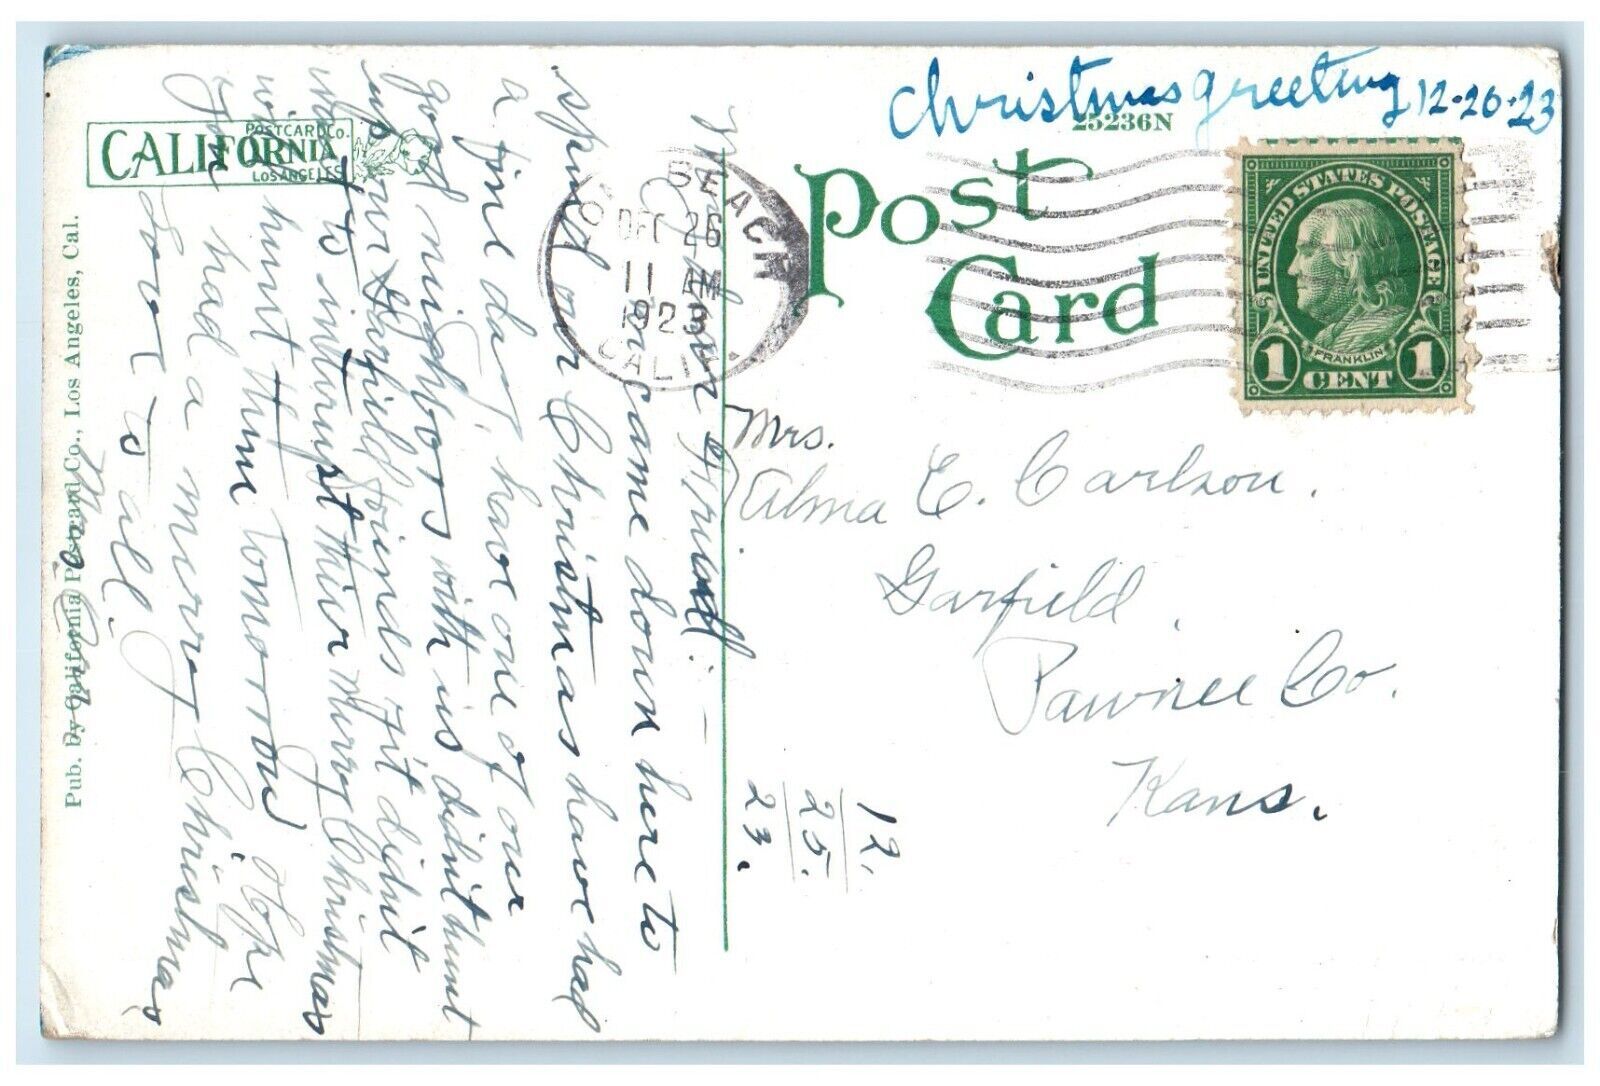 Christmas greeting 12-26-23
25236N
Post
Card
CALIFORNIA
POSTCARD CO.
LOS ANGELES
Pub. By California Postcard Co., Los Angeles, Cal.
BEACH
DEC 26
11 AM
1923
CALIF.
UNITED STATES POSTAGE
FRANKLIN
1 CENT 1
Mrs.
Alma E. Carlson.
Garfield,
Pawnee Co.
Kans.
12.
25.
23.
Friend:
came down here to
spend our Christmas have had
a fine day, have one of our
good neighbors with us didn't hunt
up our Garfield friends yet didn't
want to interrupt their Merry Christmas
will hunt them tomorrow Hope
you had a merry Christmas
Love to all.
Mr.